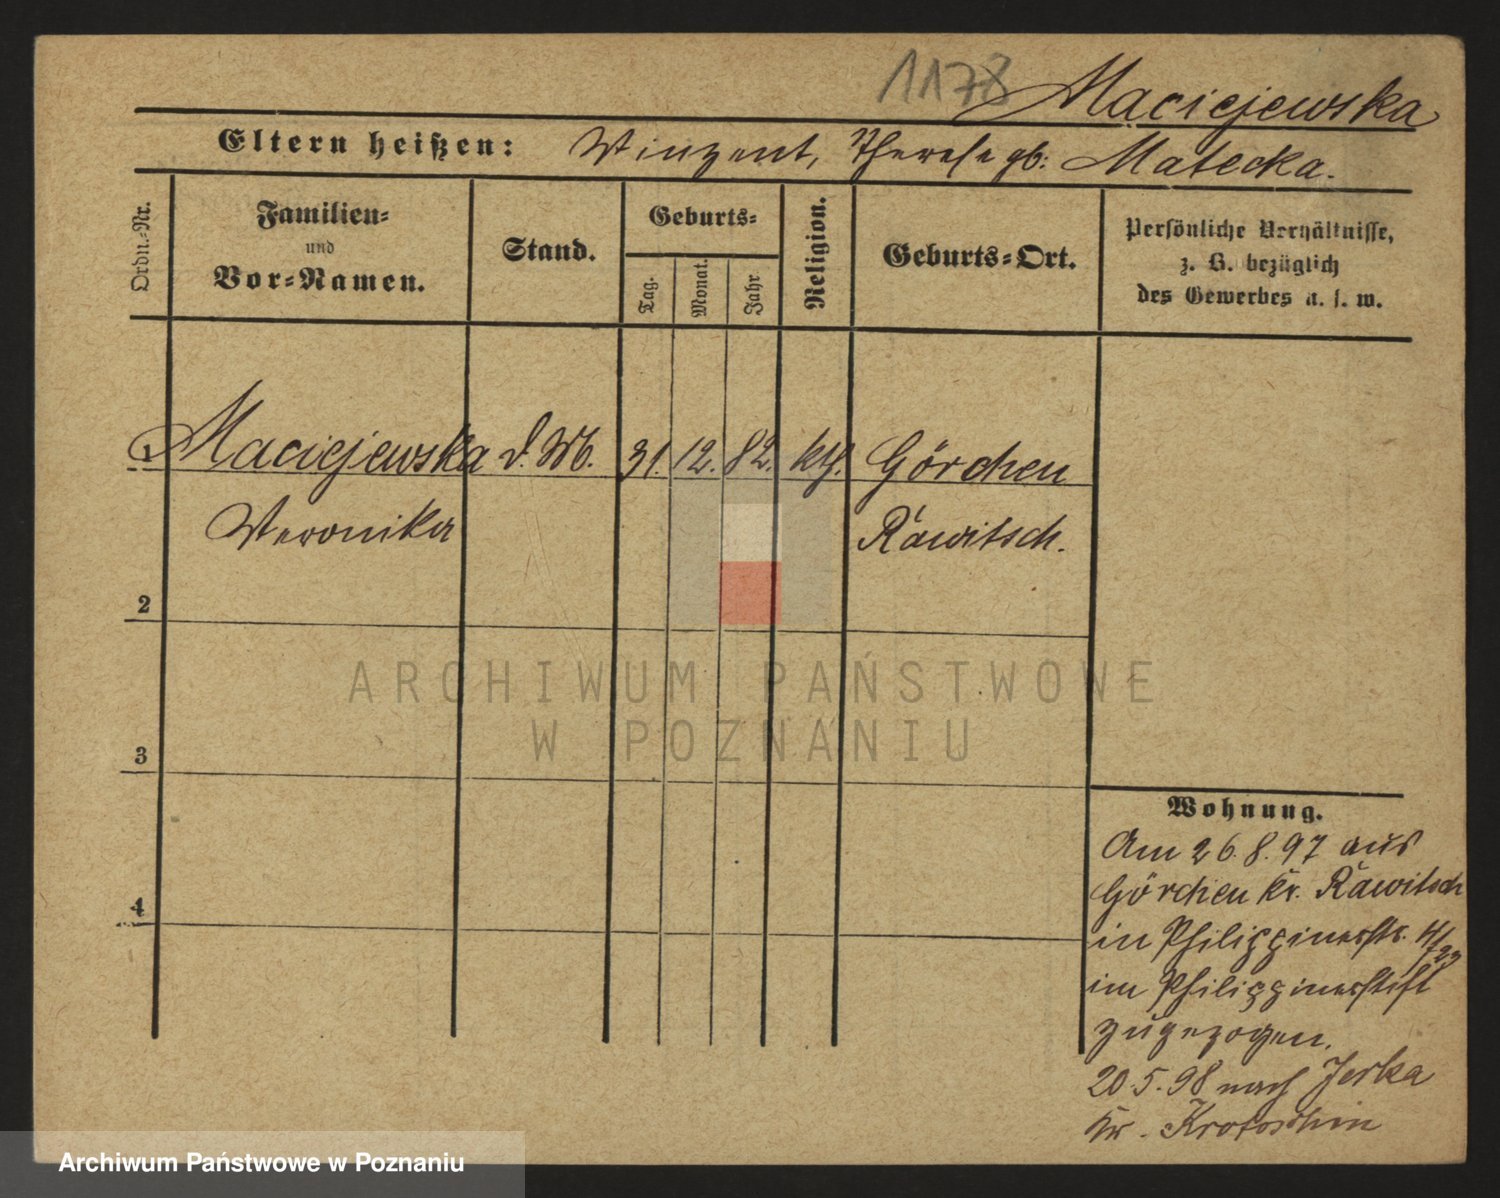 1178 Maciejewska
Eltern heißen: Winzent, Therese gb: Matecka.
Ordn.-Nr.
Familien-
und
Vor-Namen.
Stand.
Geburts-
Tag.
Monat.
Jahr
Religion.
Geburts-Ort.
Persönliche Verhältnisse,
z. B. bezüglich
des Gewerbes u. s. w.
1 Maciejewska d. Wb. 31. 12. 82. kth. Görchen
Veronika Rawitsch.
2
3
4
Wohnung.
Am 26. 8. 97 aus
Görchen Kr. Rawitsch
in Philippinerstr.
im Philippinerstift
zugezogen.
20. 5. 98 nach Jerka
Kr. Krotoschin
ARCHIWUM PAŃSTWOWE
W POZNANIU
Archiwum Państwowe w Poznaniu